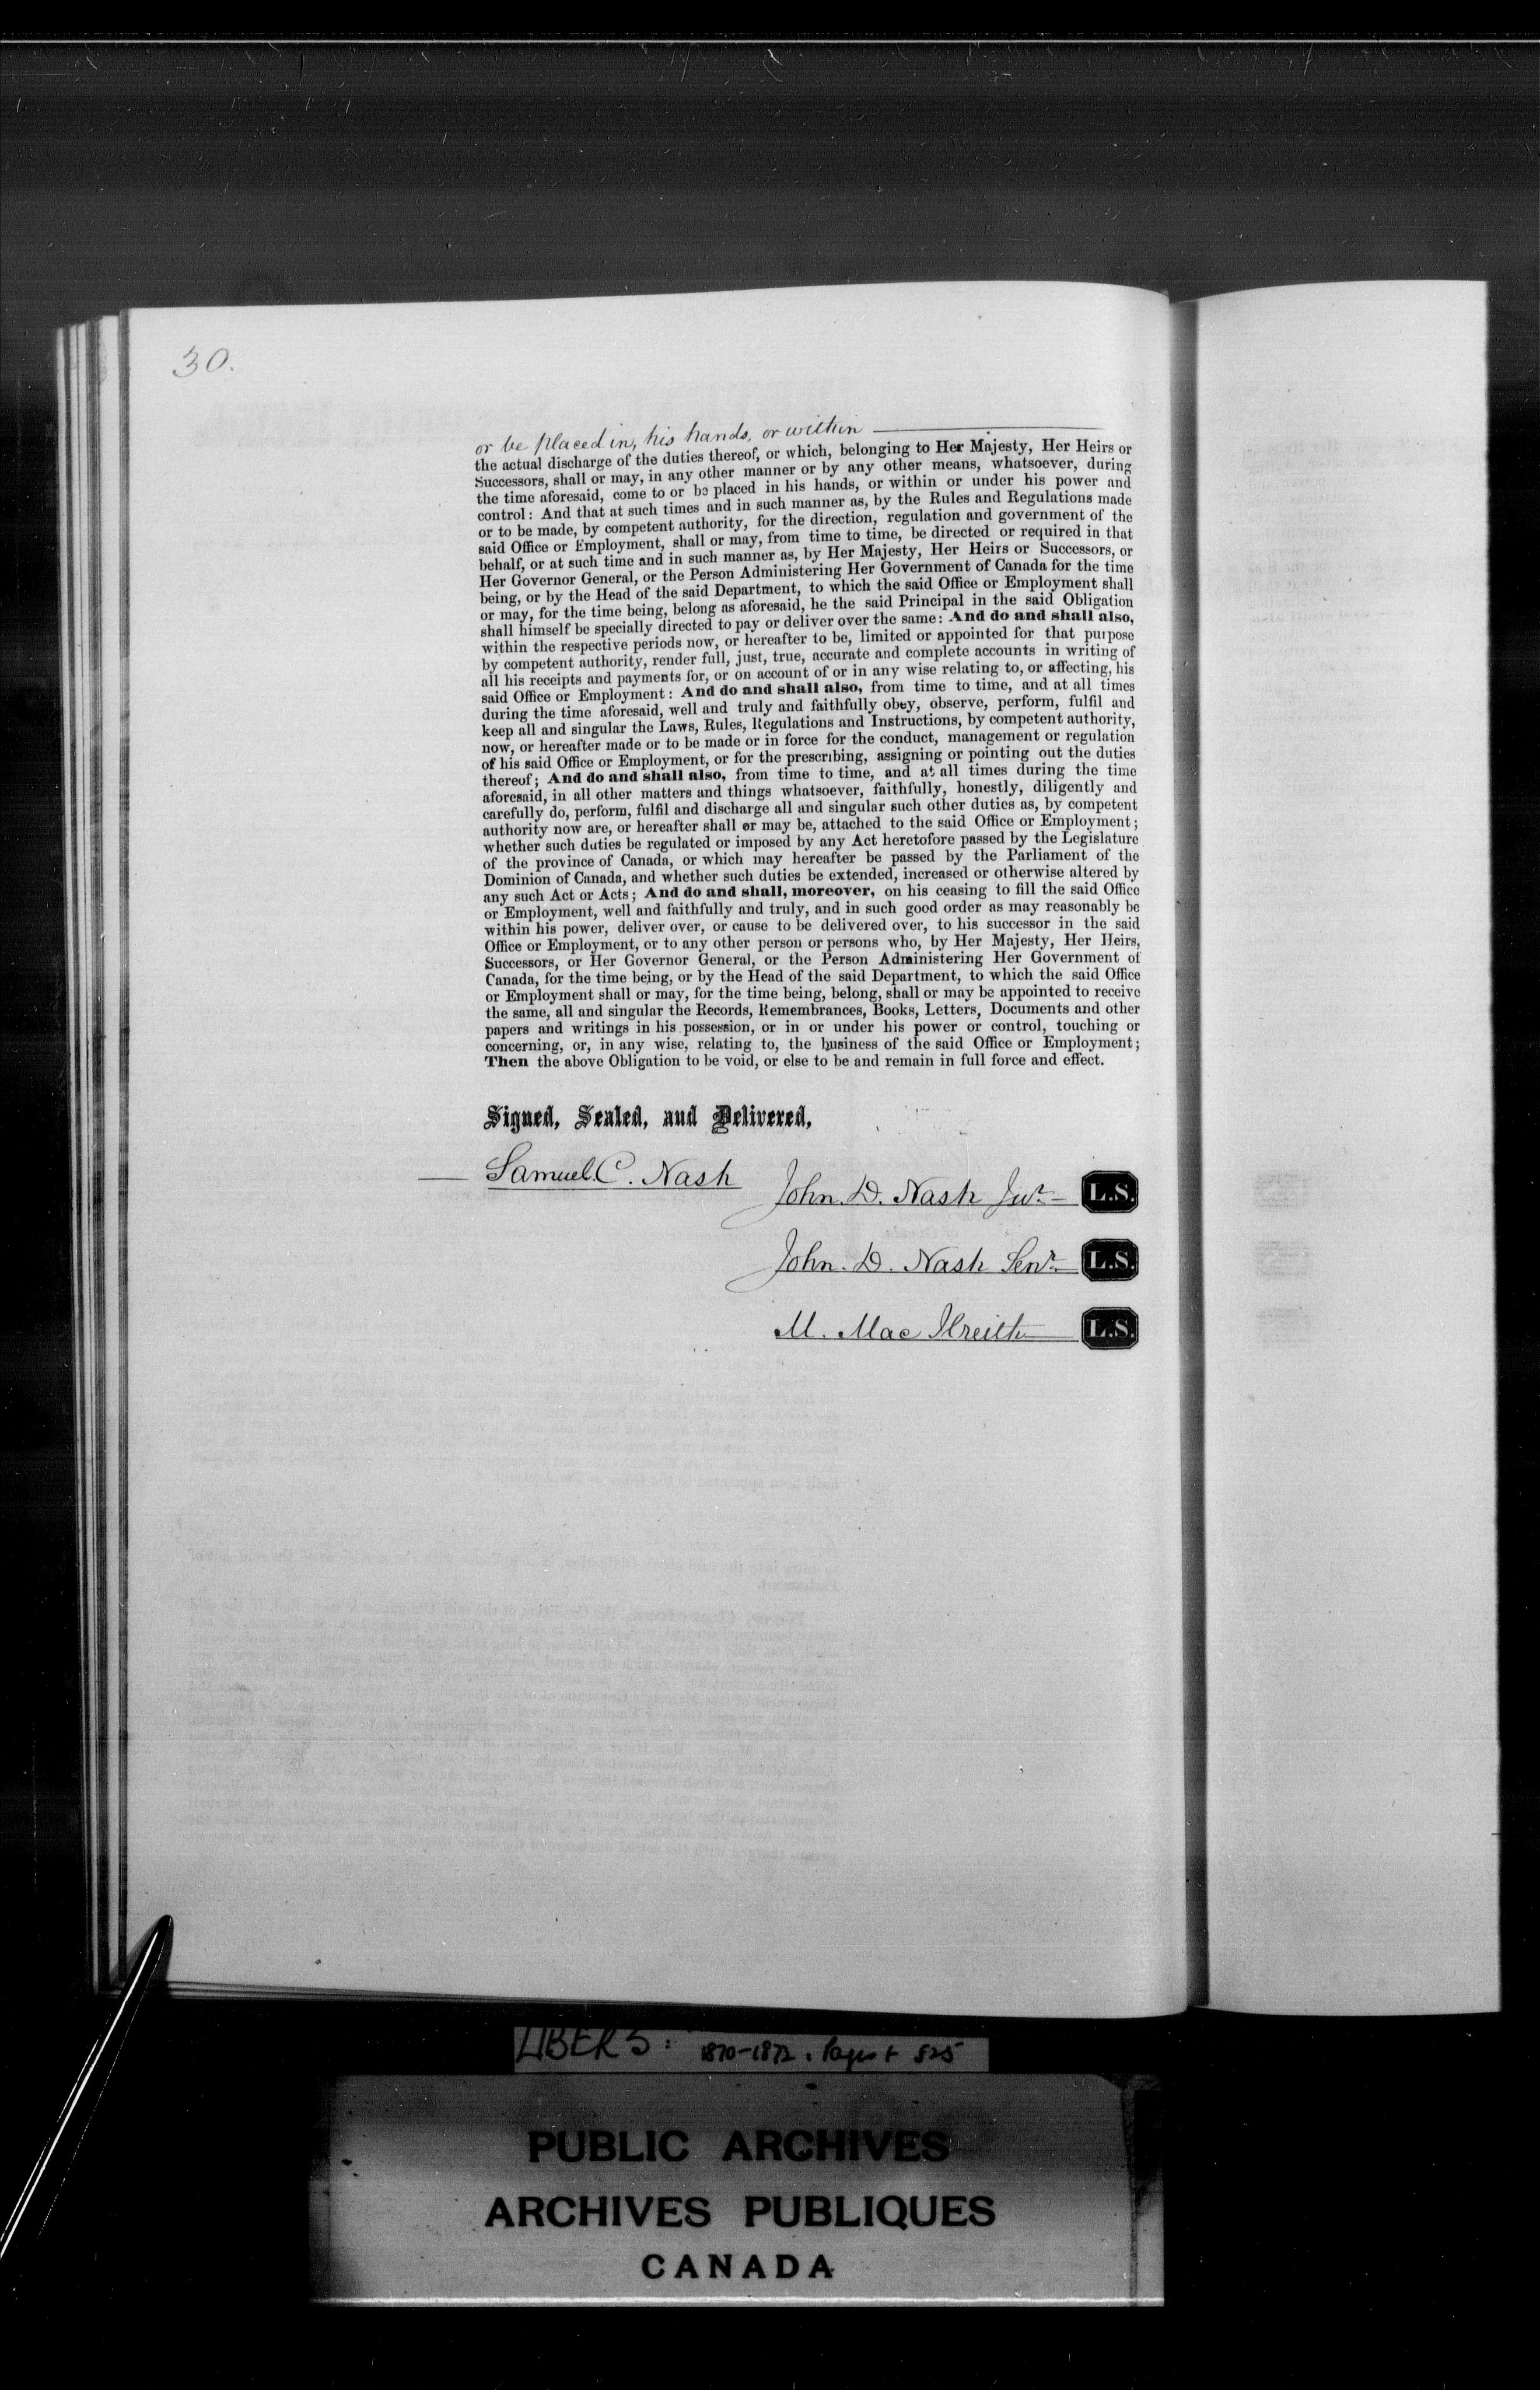 30.
or be placed in, his hands, or within
the actual discharge of the duties thereof, or which, belonging to Her Majesty, Her Heirs or
Successors, shall or may, in any other manner or by any other means, whatsoever, during
the time aforesaid, come to or be placed in his hands, or within or under his power and
control: And that at such times and in such manner as, by the Rules and Regulations made
or to be made, by competent authority, for the direction, regulation and government of the
said Office or Employment, shall or may, from time to time, be directed or required in that
behalf, or at such time and in such manner as, by Her Majesty, Her Heirs or Successors, or
Her Governor General, or the Person Administering Her Government of Canada for the time
being, or by the Head of the said Department, to which the said Office or Employment shall
or may, for the time being, belong as aforesaid, he the said Principal in the said Obligation
shall himself be specially directed to pay or deliver over the same: And do and shall also,
within the respective periods now, or hereafter to be, limited or appointed for that purpose
by competent authority, render full, just, true, accurate and complete accounts in writing of
all his receipts and payments for, or on account of or in any wise relating to, or affecting, his
said Office or Employment: And do and shall also, from time to time, and at all times
during the time aforesaid, well and truly and faithfully obey, observe, perform, fulfil and
keep all and singular the Laws, Rules, Regulations and Instructions, by competent authority,
now, or hereafter made or to be made or in force for the conduct, management or regulation
of his said Office or Employment, or for the prescribing, assigning or pointing out the duties
thereof; And do and shall also, from time to time, and at all times during the time
aforesaid, in all other matters and things whatsoever, faithfully, honestly, diligently and
carefully do, perform, fulfil and discharge all and singular such other duties as, by competent
authority now are, or hereafter shall or may be, attached to the said Office or Employment;
whether such duties be regulated or imposed by any Act heretofore passed by the Legislature
of the province of Canada, or which may hereafter be passed by the Parliament of the
Dominion of Canada, and whether such duties be extended, increased or otherwise altered by
any such Act or Acts; And do and shall, moreover, on his ceasing to fill the said Office
or Employment, well and faithfully and truly, and in such good order as may reasonably be
within his power, deliver over, or cause to be delivered over, to his successor in the said
Office or Employment, or to any other person or persons who, by Her Majesty, Her Heirs,
Successors, or Her Governor General, or the Person Administering Her Government of
Canada, for the time being, or by the Head of the said Department, to which the said Office
or Employment shall or may, for the time being, belong, shall or may be appointed to receive
the same, all and singular the Records, Remembrances, Books, Letters, Documents and other
papers and writings in his possession, or in or under his power or control, touching or
concerning, or, in any wise, relating to, the business of the said Office or Employment;
Then the above Obligation to be void, or else to be and remain in full force and effect.
Signed, Sealed, and Delivered,
Samuel C. Nash
John. D. Nash Junr L.S.
John. D. Nash Senr L.S.
M. Mac Ilreith L.S.
LIBER 5: 1870-1872. Pages 525
PUBLIC ARCHIVES
ARCHIVES PUBLIQUES
CANADA